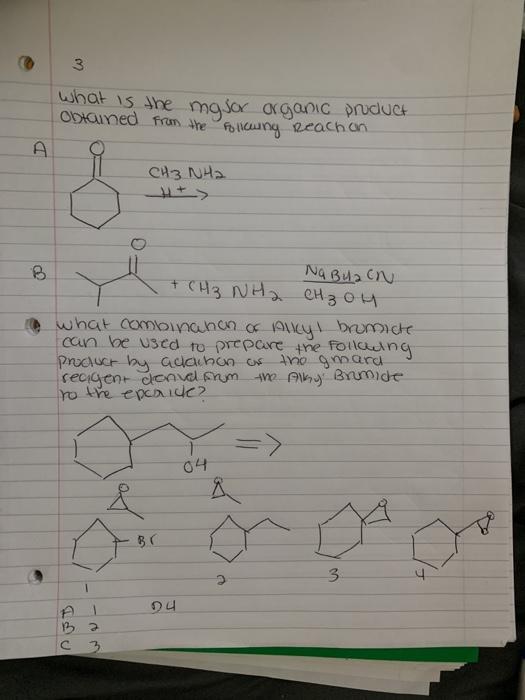 3
what is the major organic product
obtained from the following reaction
A
O
CH3 NH2
H+
B
O
+ CH3 NH2
NaBH2CN
CH3OH
what combination of Alkyl bromide
can be used to prepare the following
product by addition of the gnard
reagent derived from the Alky Bromide
to the epoxide?
OH
O
O
O
O
Br
1
2
3
4
A 1
D4
B 2
C 3